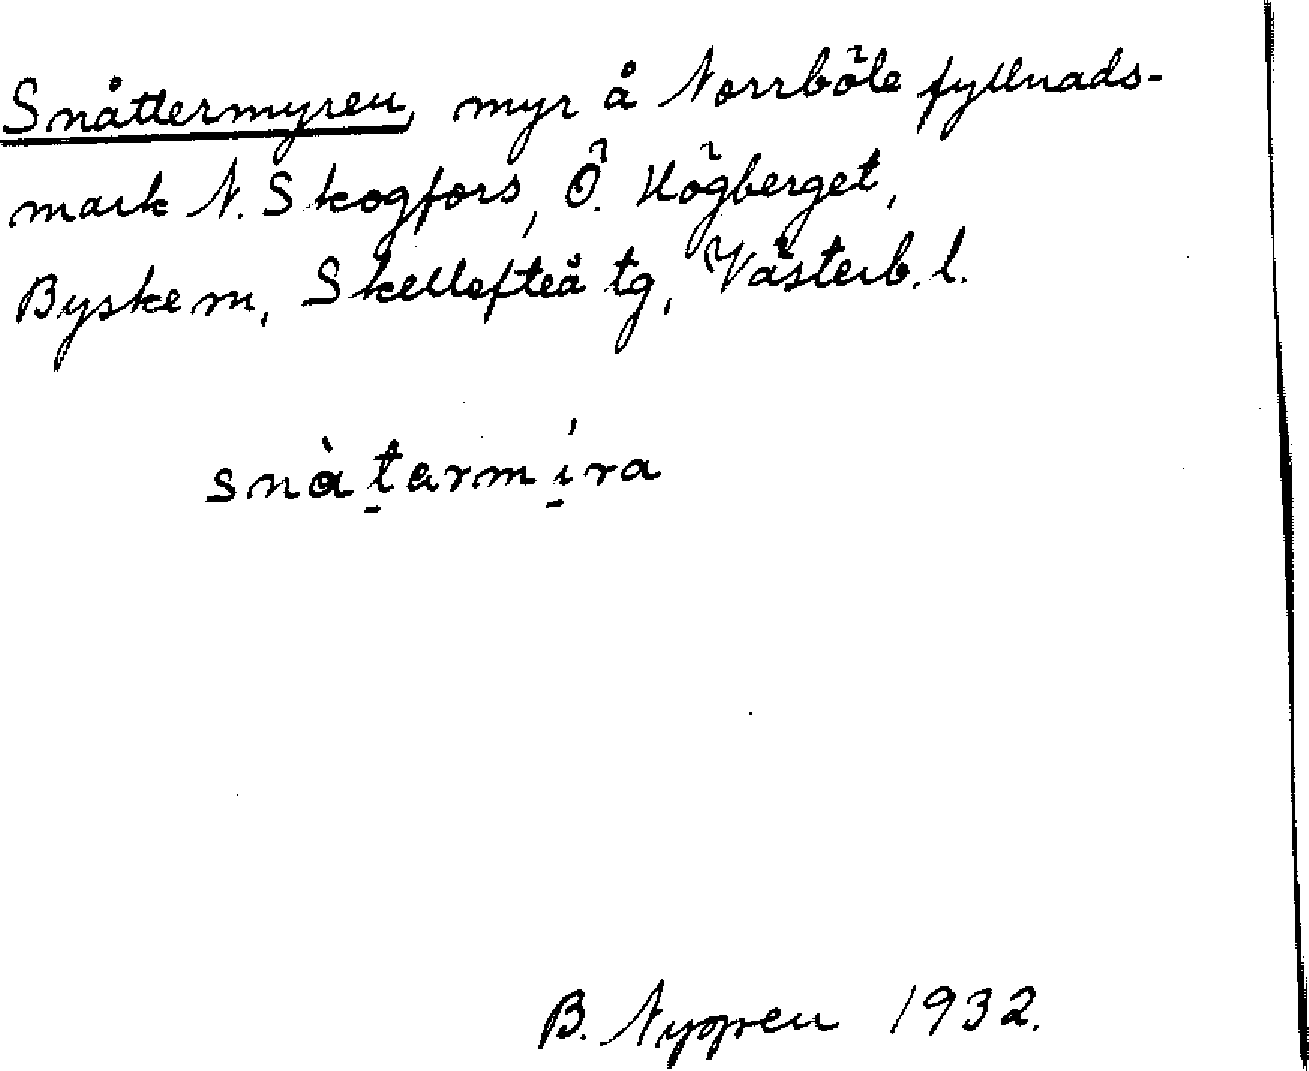 Snåttermyren, myr å Norrböle fyllnads-
mark N. Skogfors, Ö. Högberget,
Byske m, Skellefteå tg, Västerb. l.
snàt̠armı̠́ra
B. Nygren 1932.